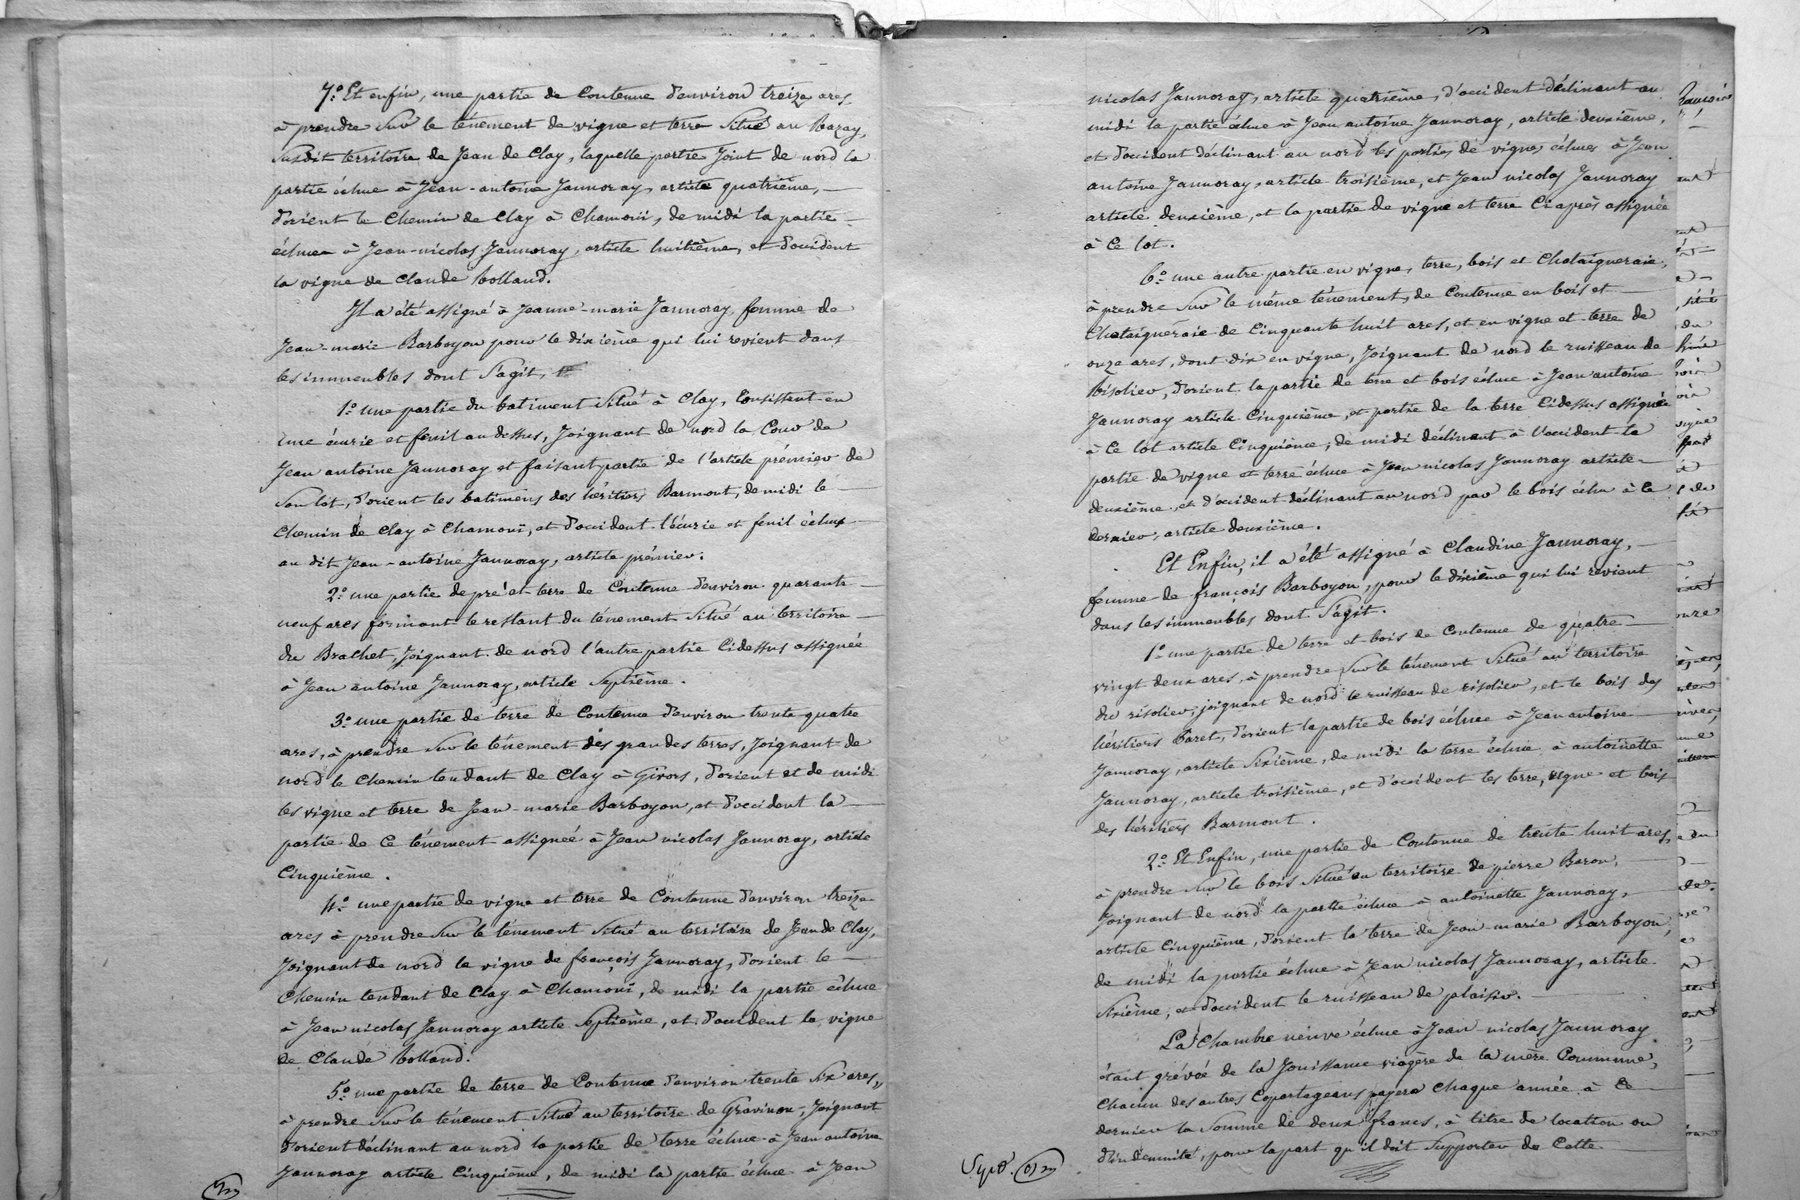 7.° Et enfin, une partie de Contenue d'environ treize ares,
à prendre Sur le ténement de vigne et terre Situé au Bazay,
Susdit territoire de Jean de Clay, laquelle partie Joint de nord la
partie échue à Jean-antoine Jannoray, article quatrième,
d'orient le Chemin de Clay à Chamoui, de midi la partie
échue à Jean-nicolas Jannoray, article huitième, et d'occident
la vigne de Claude bolland.
Il a été assigné à Jeanne-marie Jannoray, femme de
Jean-marie Barboyon pour le dixième qui lui revient dans
les immeubles dont S'agit,
1.° une partie du batiment Situé à Clay, Consistant en
une écurie et fenil au dessus, Joignant de nord la Cour de
Jean antoine Jannoray et faisant partie de l'article prémier de
Son lot, d'orient les batimens des héritiers Barmont, de midi le
Chemin de Clay à Chamoui, et d'occident l'écurie et fenil échus
au dit Jean-antoine Jannoray, article prémier.
2.° une partie de pré et terre de Contenue d'environ quarante
neuf ares formant le restant du ténement Situé au territoire
du Brachet, Joignant de nord l'autre partie Cidessus assignée
à Jean antoine Jannoray, article Septième.
3.° une partie de terre de Contenue d'environ trente quatre
ares, à prendre Sur le ténement des grandes terres, Joignant de
nord le Chemin tendant de Clay à Givors, d'orient et de midi
les vigne et terre de Jean-marie Barboyon, et d'occident la
partie de Ce ténement assignée à Jean nicolas Jannoray, article
Cinquième.
4.° une partie de vigne et terre de Contenue d'environ treize
ares à prendre Sur le ténement Situé au territoire de Jean de Clay,
Joignant de nord la vigne de françois Jannoray, d'orient le
Chemin tendant de Clay à Chamoui, de midi la partie échue
à Jean nicolas Jannoray article Septième, et d'occident la vigne
de Claude bolland.
5.° une partie de terre de Contenue d'environ trente Six ares,
à prendre Sur le ténement Situé au territoire de Gravinon, Joignant
d'orient déclinant au nord la partie de terre échue à Jean antoine
Jannoray article Cinquième, de midi la partie échue à Jean
nicolas Jannoray, article quatrième, d'occident déclinant au
midi la partie échue à Jean antoine Jannoray, article deuxième,
et d'occident déclinant au nord les parties de vigne échues à Jean
antoine Jannoray, article troisième, et Jean nicolas Jannoray
article deuxième, et la partie de vigne et terre Ci après assignée
à Ce lot.
6.° une autre partie en vigne, terre, bois et Chataigneraie,
à prendre Sur le même ténement, de Contenue en bois et
Chataigneraie de Cinquante huit ares, et en vigne et terre de
onze ares, dont dix en vigne, Joignant de nord le ruisseau de
Risolier, d'orient la partie de terre et bois échue à Jean antoine
Jannoray article Cinquième, et partie de la terre Cidessus assignée
à Ce lot article Cinquième, de midi déclinant à l'occident la
partie de vigne et terre échue à Jean nicolas Jannoray article
deuxième, et d'occident déclinant au nord par le bois échu à Ce
dernier, article deuxième.
Et Enfin, il a été assigné à Claudine Jannoray,
femme de françois Barboyon, pour le dixième qui lui revient
dans les immeubles dont S'agit.
1.° une partie de terre et bois de Contenue de quatre
vingt deux ares, à prendre Sur le ténement Situé au territoire
du risolier, joignant de nord le ruisseau de risolier, et le bois des
héritiers Baret, d'orient la partie de bois échue à Jean antoine
Jannoray, article Sixième, de midi la terre échue à antoinette
Jannoray, article troisième, et d'occident les terre, vigne et bois
des héritiers Barmont.
2.° Et Enfin, une partie de Contenue de trente huit ares,
à prendre Sur le bois Situé au territoire de pierre Baron,
Joignant de nord la partie échue à antoinette Jannoray,
article Cinquième, d'orient la terre de Jean-marie Barboyon,
de midi la partie échue à Jean nicolas Jannoray, article
Sixième, et d'occident le ruisseau de plaisir.
La Chambre neuve échue à Jean-nicolas Jannoray
étant grévée de la Jouissance viagère de la mère Commune,
Chacun des autres Copartageans payera Chaque année à Ce
dernier la Somme de deux francs, à titre de location ou
d'indemnité, pour la part qu'il doit Supporter de Cette